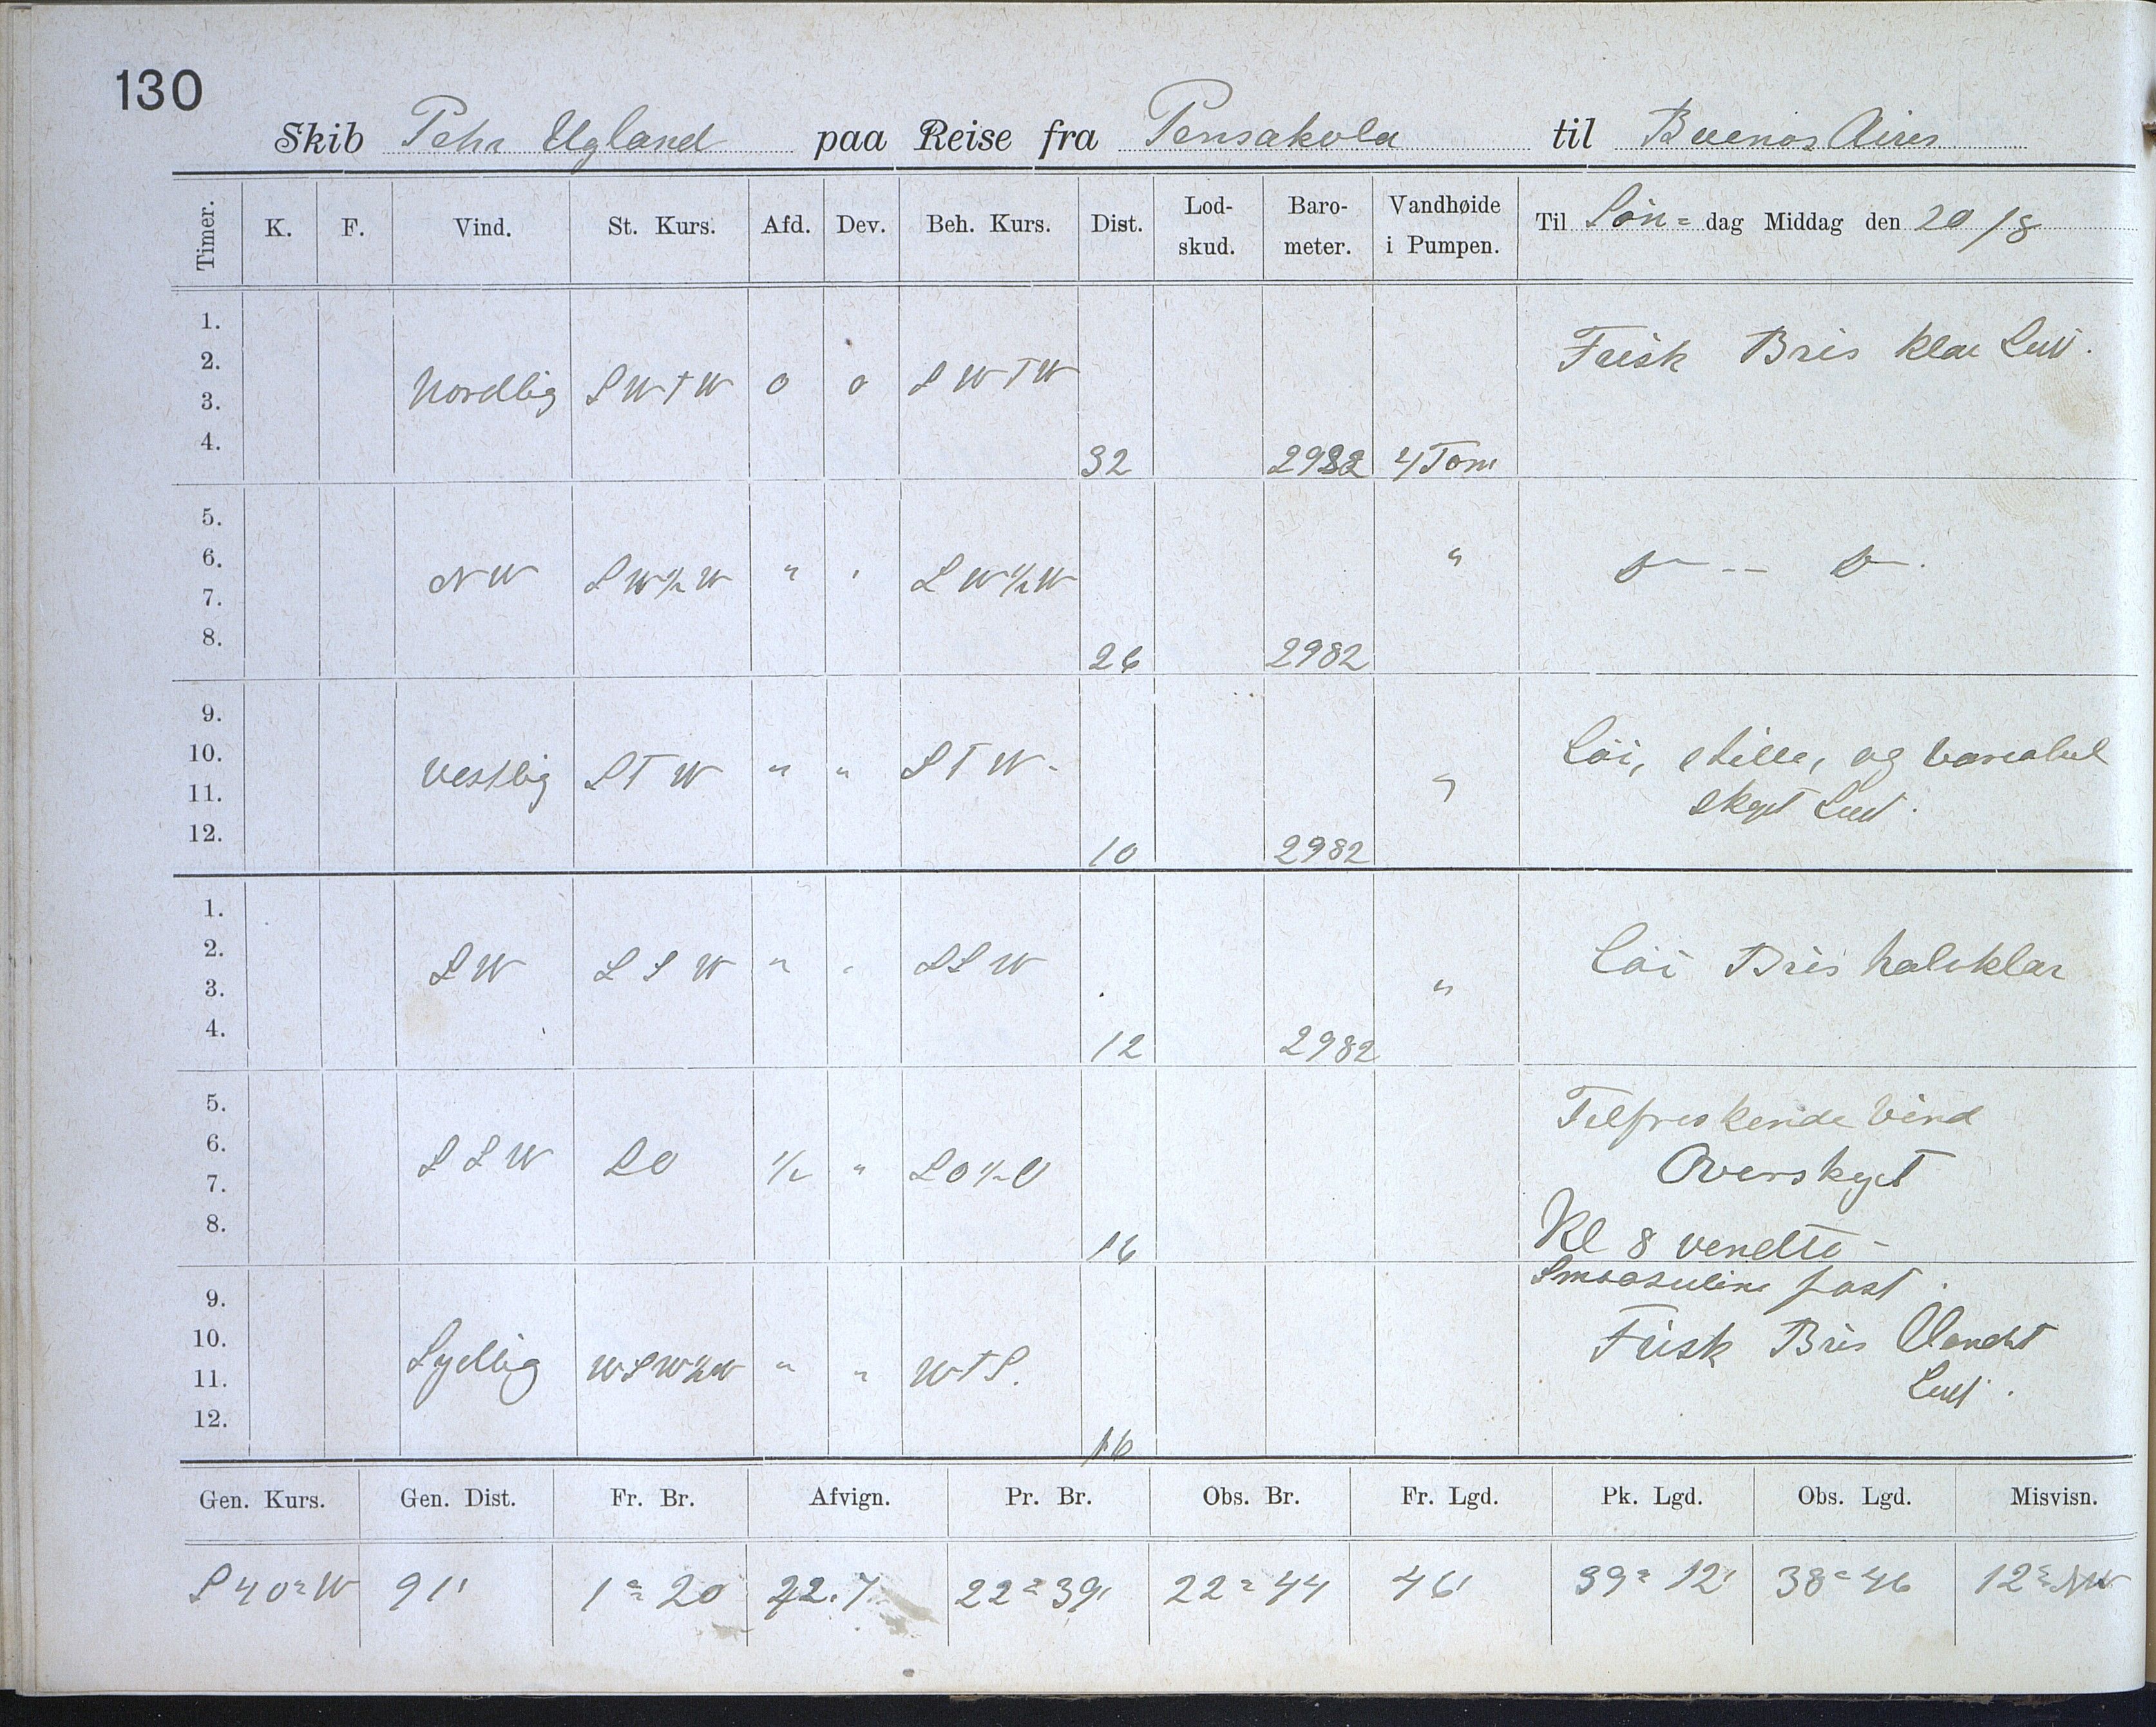 130
Skib Pehr Ugland paa Reise fra Pensakola til Buenos Aires
Timer. K. F. Vind. St. Kurs. Afd. Dev. Beh. Kurs. Dist. Lod-skud. Baro-meter. Vandhøide i Pumpen. Til Søn= dag Middag den 20/8
1.
2. Frisk Bris klar Luft.
3. Nordlig SWTW 0 0 SWTW
4. 32 2982 4 Tom
5.
6. NW SW½W " " SW½W " Do -- Do.
7.
8. 26 2982
9.
10. Vestlig STW " " STW. " Løi, stille, og variabel
11. skyet Luft.
12. 10 2982
1.
2. SW SSW " " SSW " Løi Bris halvklar
3.
4. 12 2982
5. Tilfriskende Vind
6. SSW SO ½ " SO½O Overskyet
7.
8. 16 Kl 8 vendte -
9. Smaaseilene fast.
10. Frisk Bris
11. Sydlig WSW½W " " WTS. Luft.
12. 16
Gen. Kurs. Gen. Dist. Fr. Br. Afvign. Pr. Br. Obs. Br. Fr. Lgd. Pk. Lgd. Obs. Lgd. Misvisn.
S40°W 91' 1° 20 22.7 22° 39' 22° 44 46' 39° 12' 38° 46 12° NW